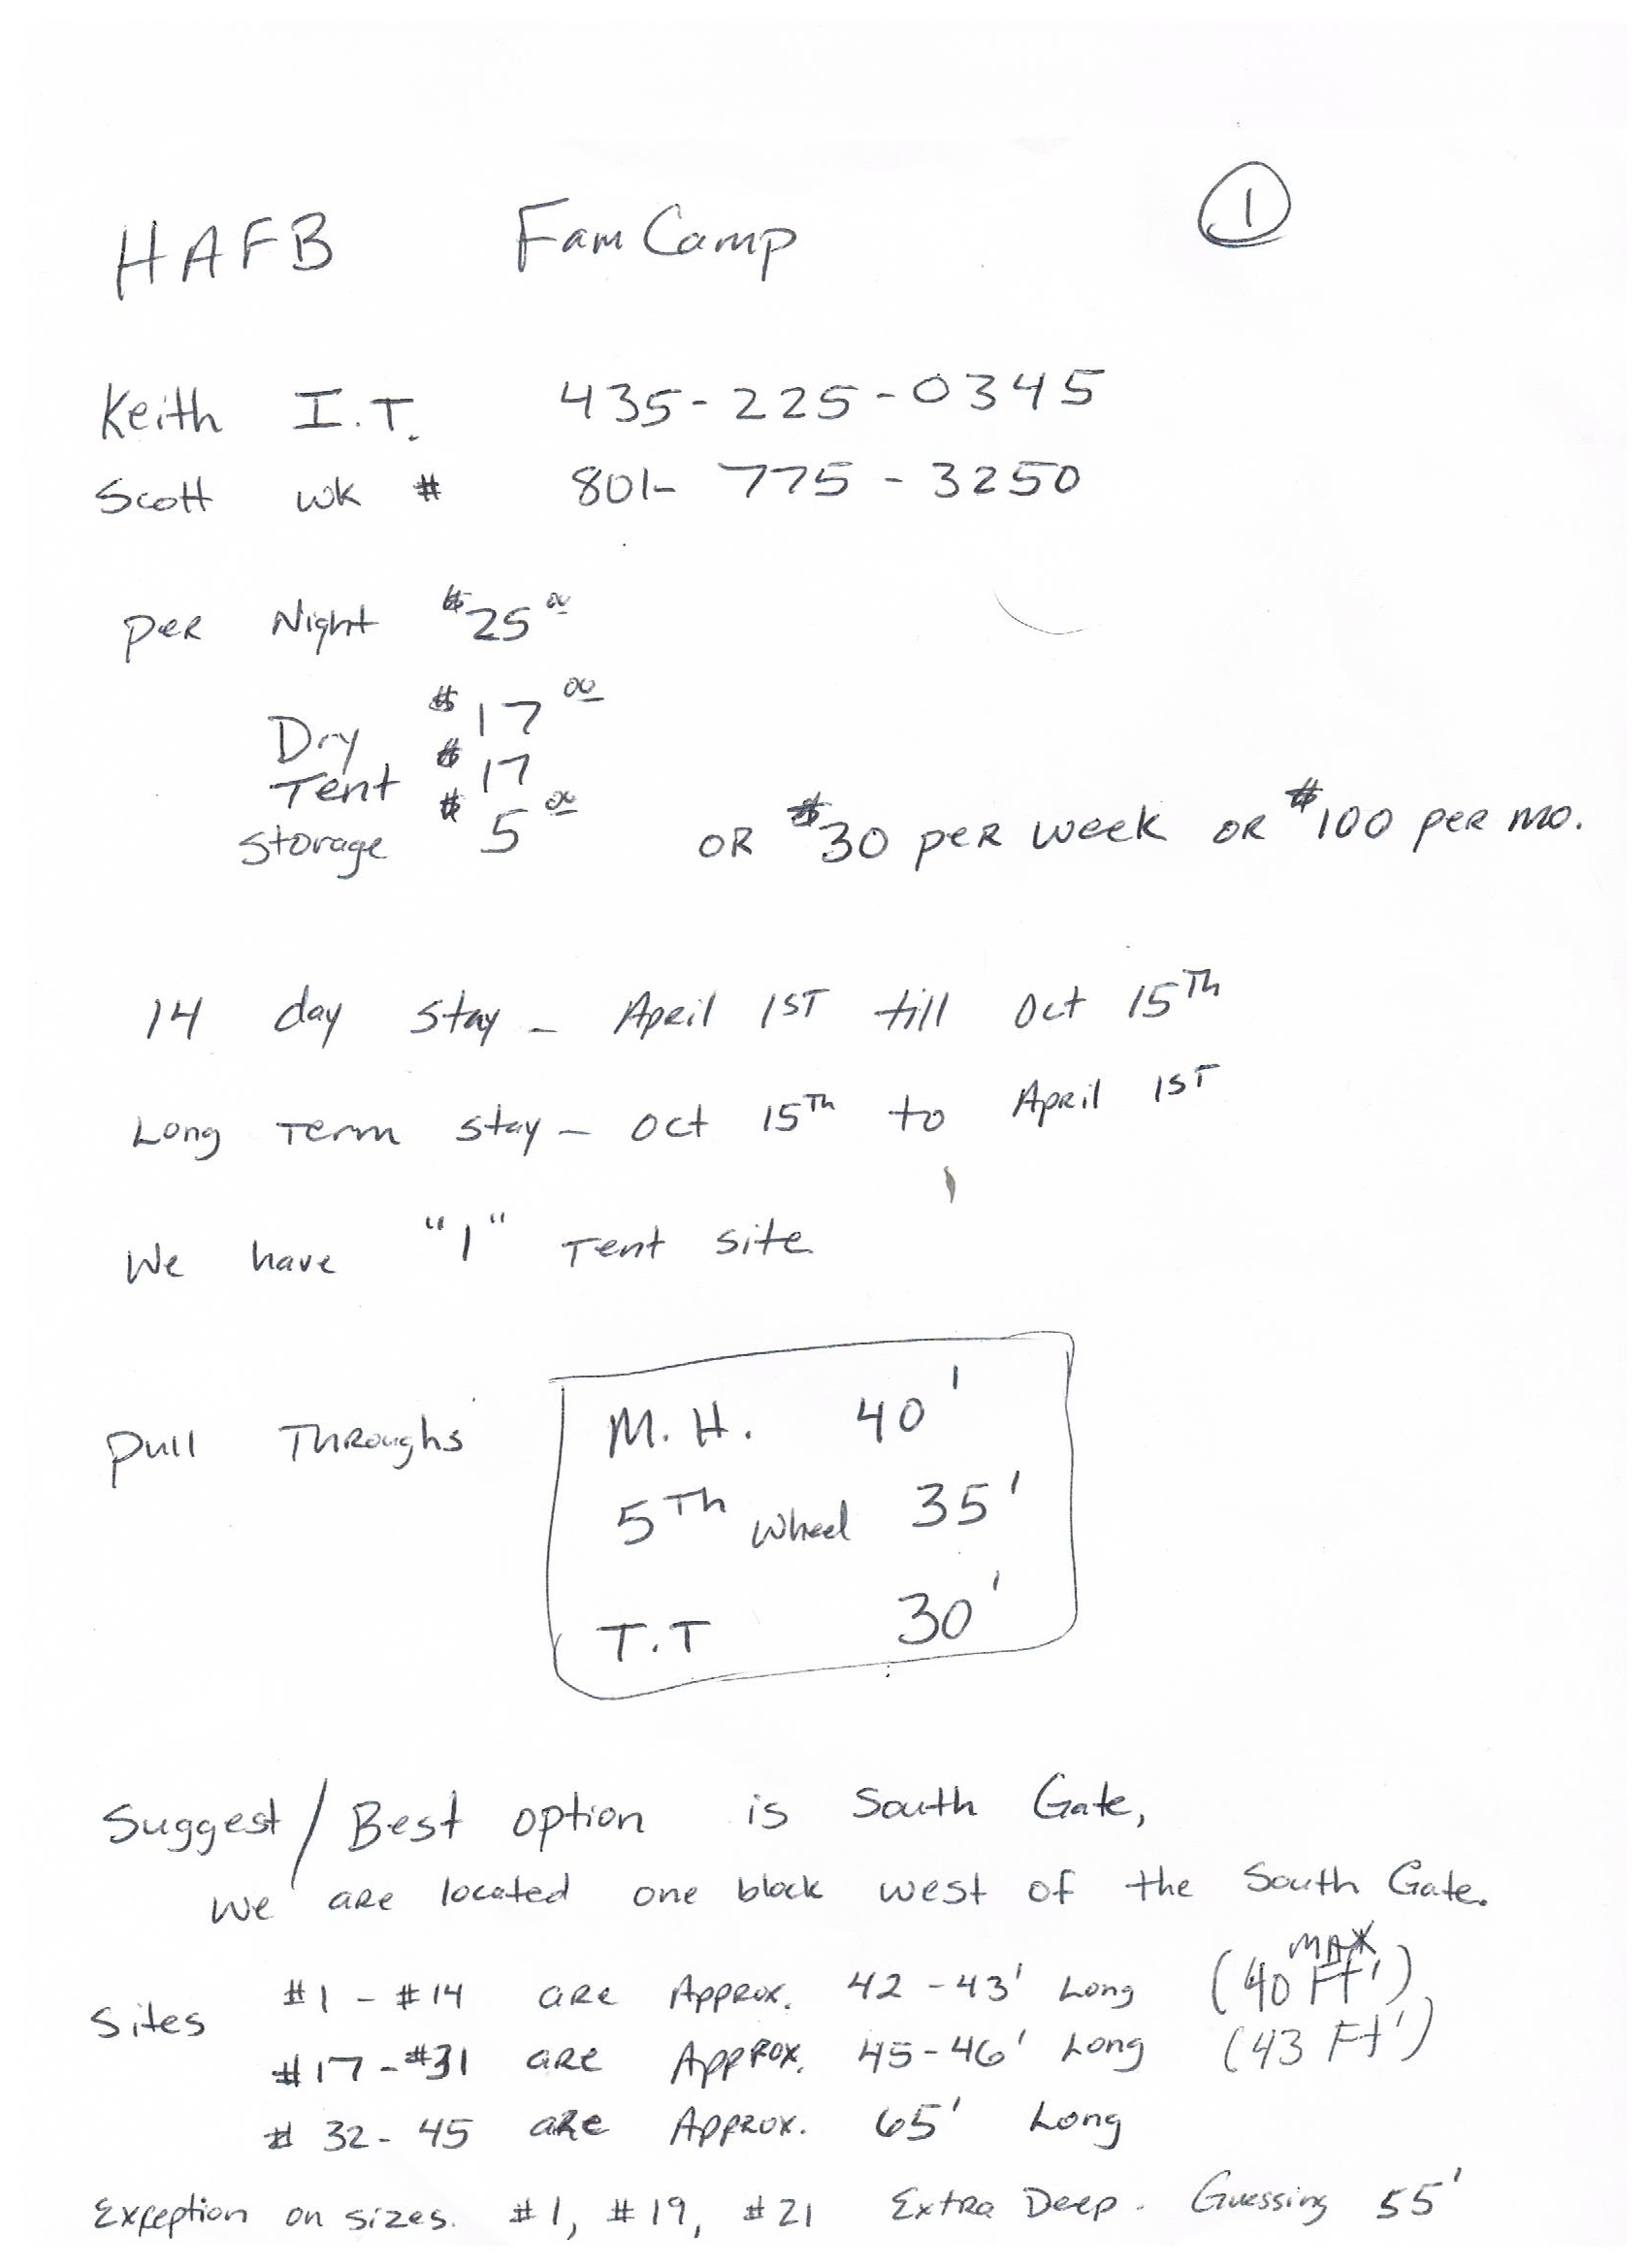 HAFB FamCamp 1
Keith I.T. 435-225-0345
Scott wk # 801-775-3250
per Night $25.00
Dry $17.00
Tent $17
Storage $5.00 OR $30 per week OR $100 per mo.
14 day stay - April 1ST till Oct 15Th
Long Term stay - Oct 15Th to April 1ST
We have "1" Tent site
Pull Throughs M.H. 40'
5Th Wheel 35'
T.T 30'
Suggest/Best option is South Gate,
We are located one block west of the South Gate.
Sites #1-#14 are Approx. 42-43' Long (40 Ft') MAX
#17-#31 are Approx. 45-46' Long (43 Ft')
# 32-45 are Approx. 65' Long
Exception on sizes. #1, #19, #21 Extra Deep. Guessing 55'